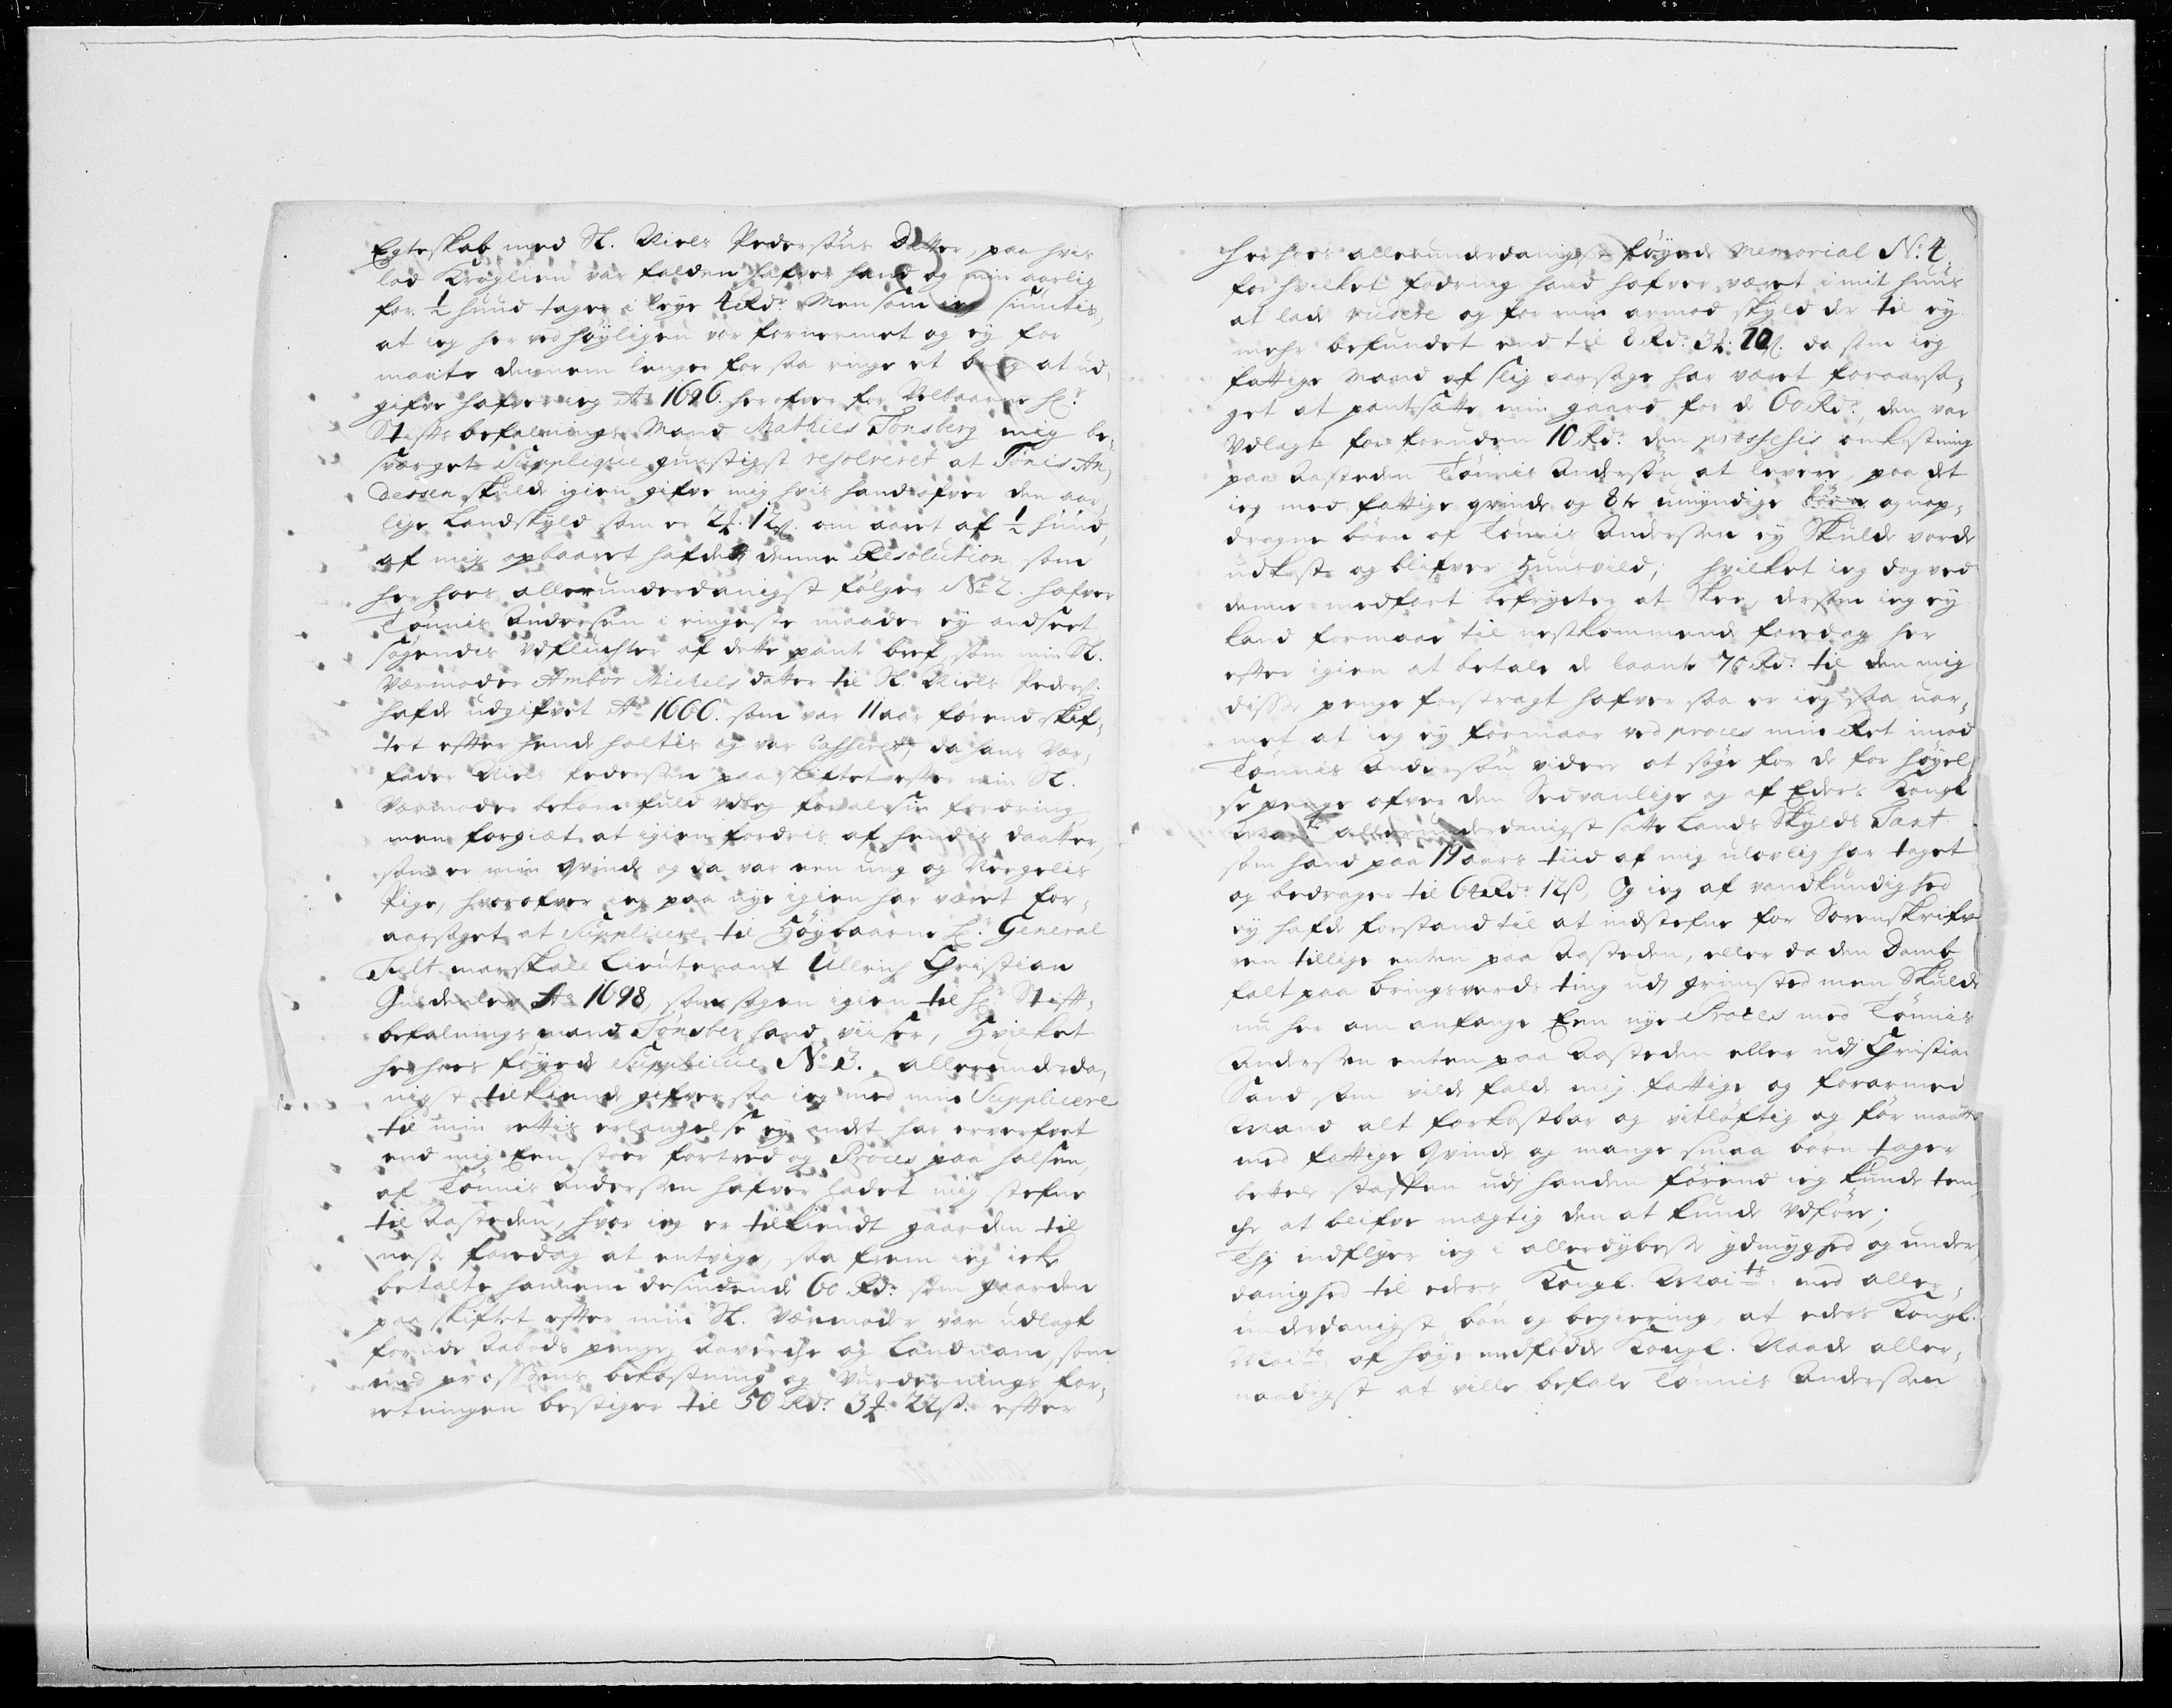 Egteskab med Sl. Niels Pedersøns Datter, paa hvis
lod Kroglien var falden hafver hand og min aarlig
for ½ hund tager i leye 4 Rdr. Men som ieg siuntis,
at ieg her ved høyligen var fornermet og ey for
maate dennem lenger for saa ringe et brug at ud-
gifve hafver ieg Ao 1696. herofver for Velbaarne Hr.
Stiftsbefalnings Mand Mathies Tonsberg mig be-
sværget Supplique gunstigst resolveret at Tönis An-
dersen skulde igien gifve mig hvis hand ofver den aar-
lige Landskyld som er 2 12 ß. om aaret af ½ hund,
af mig opbaaret hafde denne Resolution som
her hoes allerunderdanigst følger No 2. hafver
Tönnis Andersen i ringeste maader ey andseet
søgendis Udfluchter af dette pant bref, som min Sl.
Værmoder Ambor Michels datter til Sl. Niels Peders:
hafde udgifvet Ao 1666. som var 11 aar førend skif-
tet efter hende holtis og var Casseret, da hans Vær-
fader Niels Pedersen paa skiftet efter min Sl.
Værmoder bekom fuld udleg for al sin fordring
men forgiæt at igien fordris af hendis daatter,
som er min qvinde og da var een ung og Vergelis
Pige, hvorofver ieg paa nye igien har været for-
aarsaget at Supplicere til Høybaarne Hr. General
Felt marskall Lieutenant Ullrich Christian
Guldenlev Ao 1698, som sagen igien til Hr. Stift-
befalnings mand Tönsber hand viiser, Hvilket
her hoes føyede Supplicue No 3. allerunderda-
nigst tilkiende gifver saa ieg med min Supplicere
til min rettis erlangelse ey andet har erverfvet
end mig Een stoer fortred og Proces paa halsen,
af Tönnis Andersen hafver ladet mig stefne
til Aasteden, hvor ieg er tilkiendt gaarden til
nest faredag at entvige, saa frem ieg icke
betalte hannem desindende 60 Rdr. som gaarden
paa skiftet efter min Sl. Værmoder var udlagt
foruden Aabods penge, Aaverche og Landnam, som
med prossens bekostning og Vurdernings for-
retningen bestiger til 50 Rdr. 3 22 ß. efter
her hoes allerunderdanigst føyede Memorial No 4.
for hvilket fodring hand hafver været i mit huus
at lade vurdere og for min armod skyld der til ey
mehr befundet end til 8 Rdr. 3 20 ß. da som ieg
fattige Mand af slig aarsage har været foraarsa-
get at pantsætte min gaard for de 60 Rdr., den var
Udlagt for foruden 10 Rdr. den prossesis omkostning
paa Aasteden Tönnis Andersøn at levere, paa det
ieg med fattige qvinde og 8te umyndige børn og uop-
dragne børn af Tönnis Andersen ey skulde vorde
udkaste og blifver Huusvild, hvilket ieg dog ved
denne medfart befrycter at skee, dersom ieg ey
kand formaae til nestkommende faredag her
efter igien at betale de laante 70 Rdr. til den mig
disse penge forstragt hafver saa er ieg saa uar-
met at ieg ey formaar ved proces min Ret imod
Tönnis Andersøn videre at søge for de for høyel-
se penge ofver den Sedvanlige og af Eders Kongl
Mayts allerunderdanigst satte Lands Skylds Taxt
som hand paa 19 aars tiid af mig ulovlig har taget
og bedrager til 64 Rdr. 12 ß, Og ieg af vandkundighed
ey hafde forstand til at indstefne for Sorenskrifve-
ren tillige enten paa Aasteden, eller da den Domb
falt paa Bringsverds ting udj grimsted men skulde
nu her om anfange Een nye Proces med Tönnis
Andersen enten paa Aasteden eller udj Christian
Sand som vilde falde mig fattige og forarmed
Mand alt forkostbar og vitløftig og før maatte
med fattige Qvinde og mange smaa børn tager
bettel stafven udj handen førend ieg kunde ten-
che at blifve mægtig den at kunde Udføre;
Thj indflyer ieg i allerdybeste ydmyghed og under-
danighed til eders Kongl. Maits. med aller-
underdanigst bøn og begiering, at eders Kongl.
Maits af høye medfødde Kongl. Naade aller-
naadigst at ville befale Tönnis Andersen